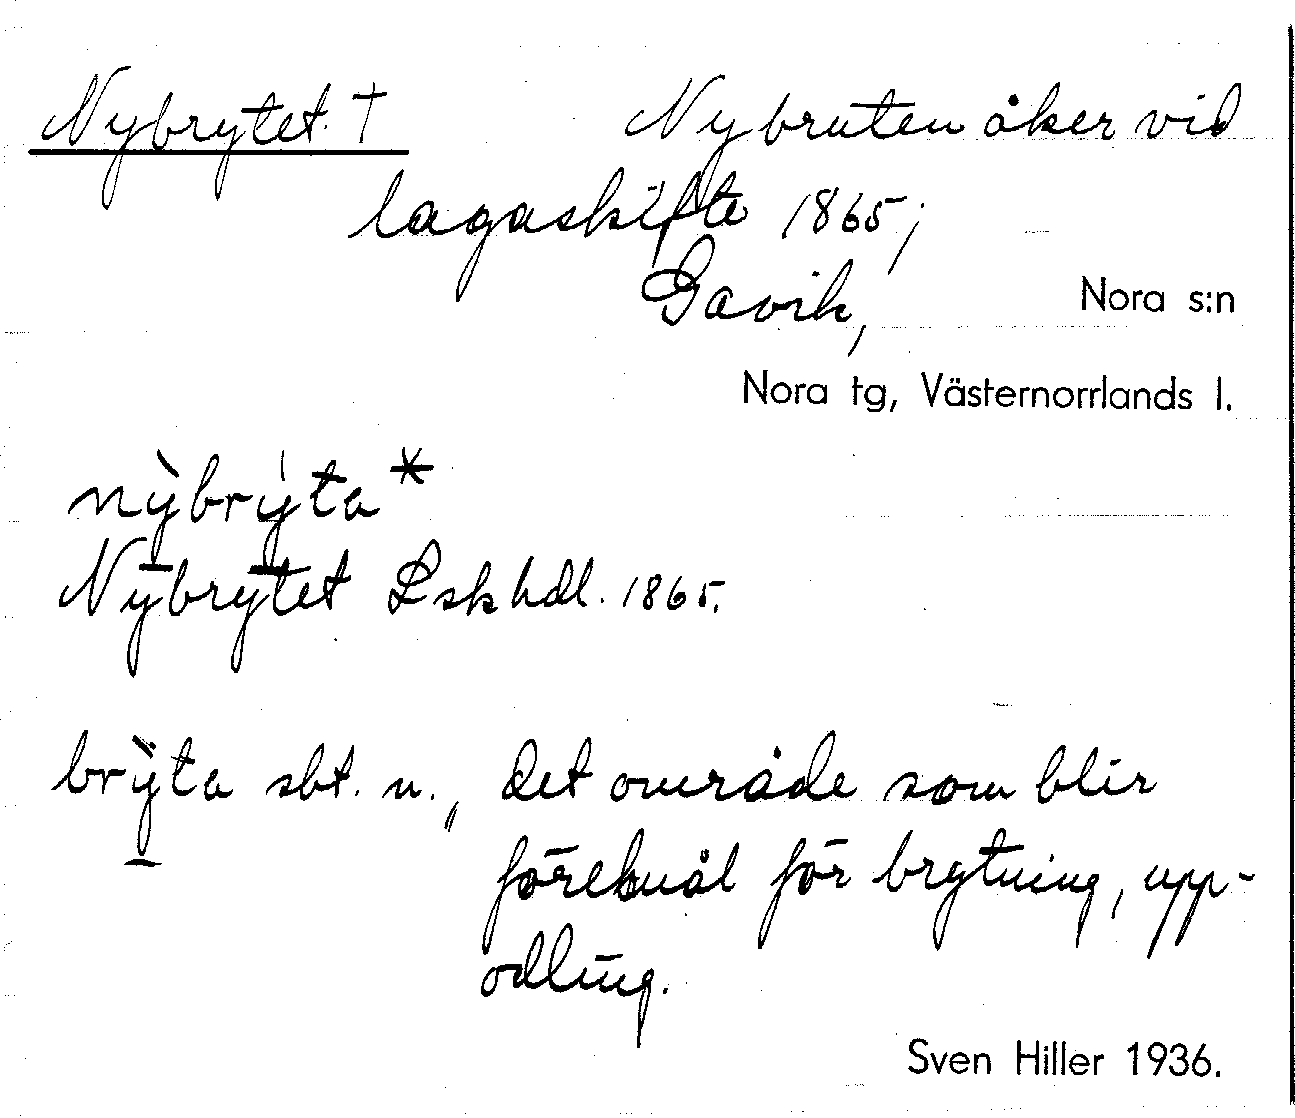 Nybrytet. † Nybruten åker vid
lagaskifte 1865;
Gavik, Nora s:n
Nora tg, Västernorrlands l.
nỳbrýta*
Nybrytet Lskhdl. 1865.
brỳta sbt. n., det område som blir
föremål för brytning, upp-
odling.
Sven Hiller 1936.